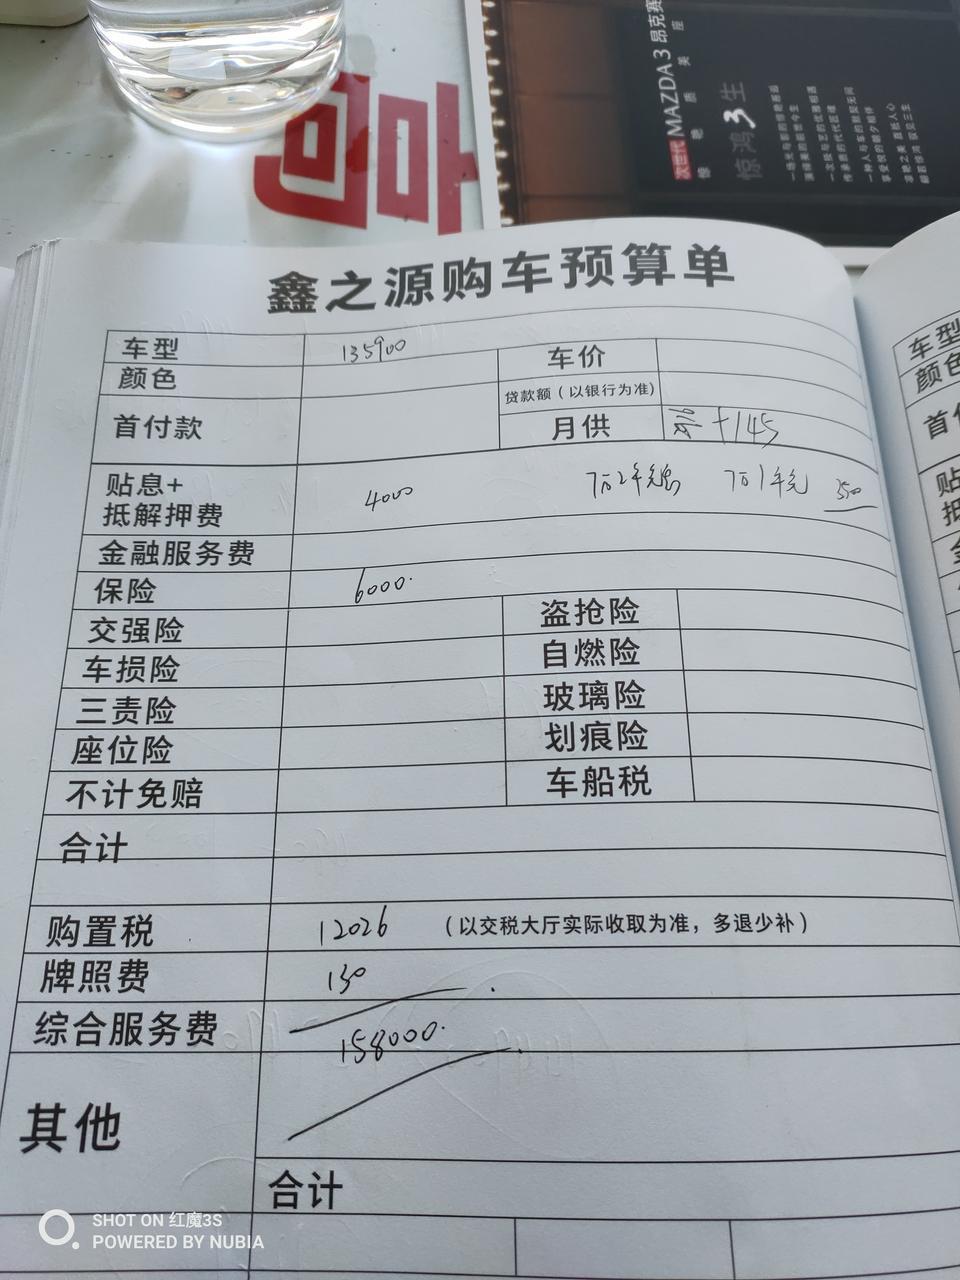 高
次世代 MAZDA3 昂克赛
惊艳质美座
惊鸿3生
鑫之源购车预算单
车型 135900 车价
颜色 贷款额（以银行为准）
首付款 月供 +1145
贴息+ 4000 7万2年免息 7万1年免 3500
抵解押费
金融服务费
保险 6000
交强险 盗抢险
车损险 自燃险
三责险 玻璃险
座位险 划痕险
不计免赔 车船税
合计
购置税 12026 （以交税大厅实际收取为准，多退少补）
牌照费 130
综合服务费 158000
其他
合计
车型
颜色
首付
贴
抵
SHOT ON 红魔3S
POWERED BY NUBIA